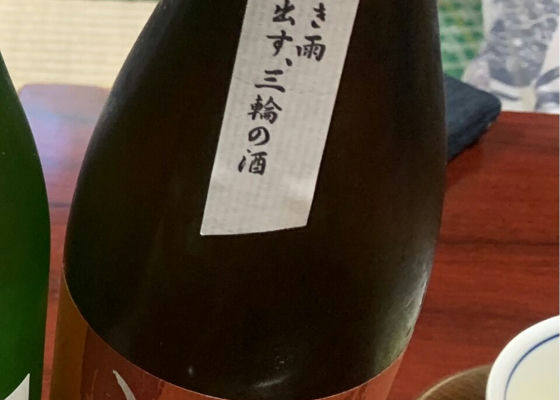 き雨
出す、三輪の酒